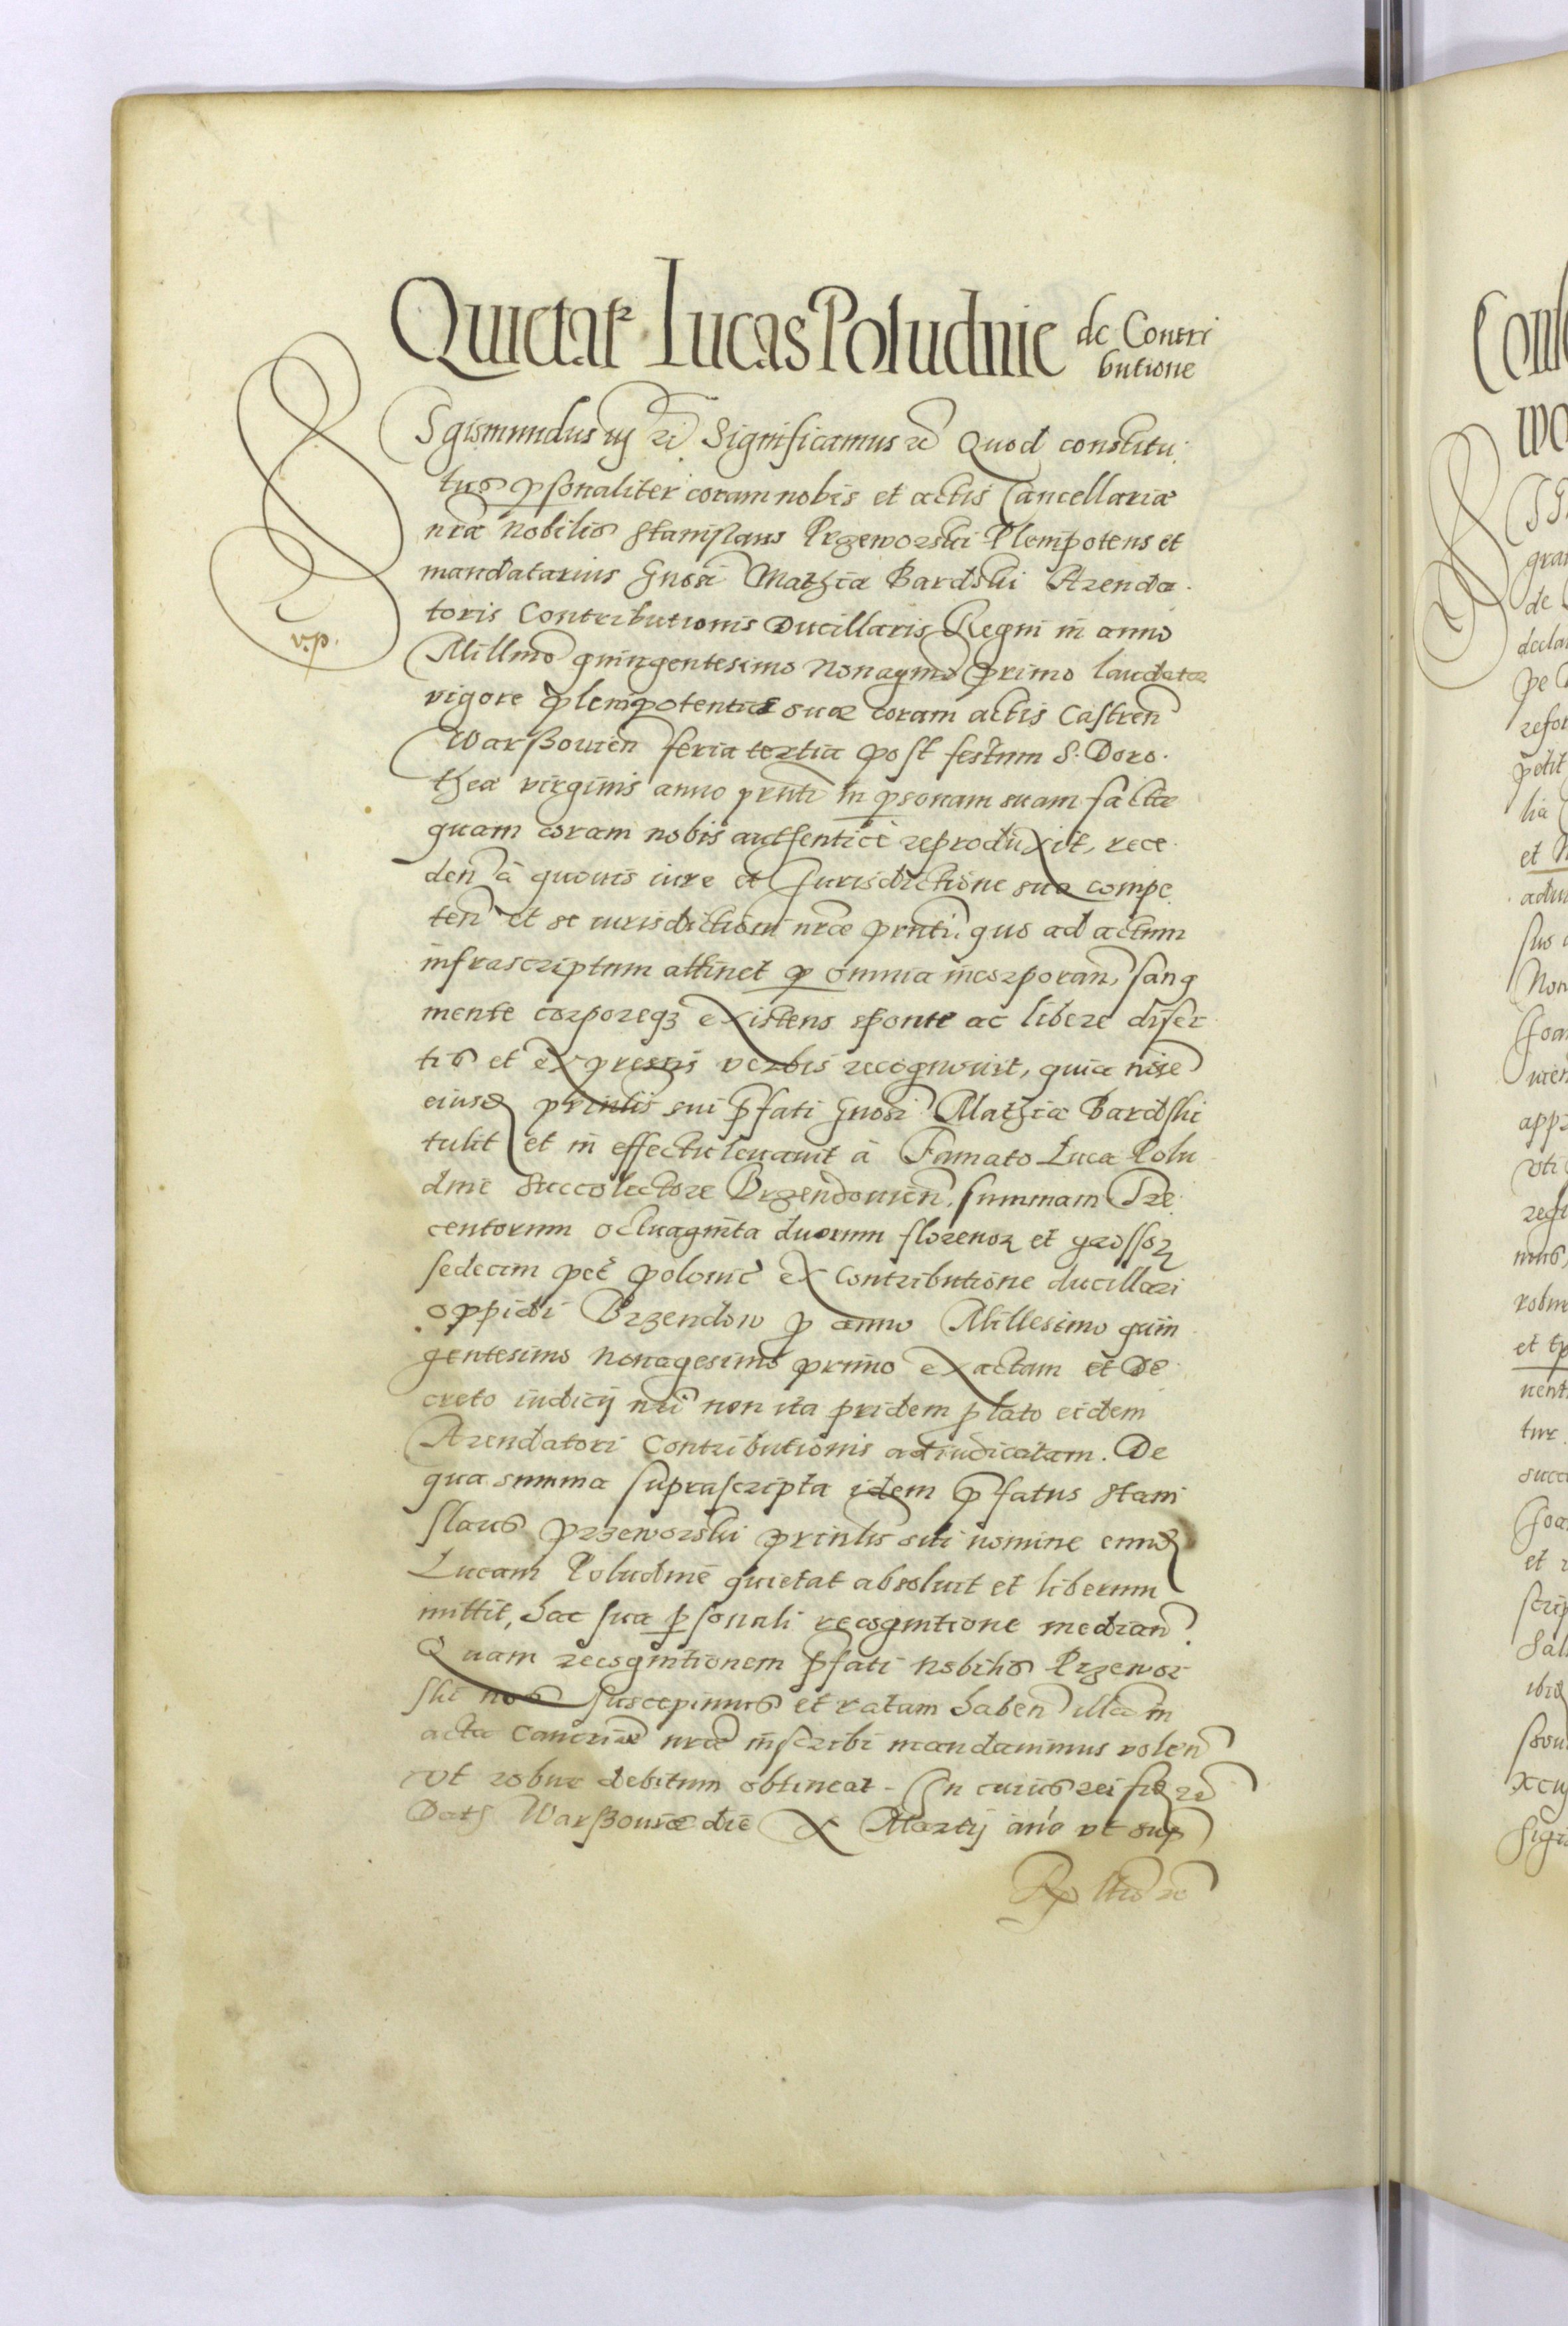 Quietatr Lucas Poludnie de Contri
butione
Sgismundus iij rc Significamus rc Quod constitu
tus psonaliter coram nobis et actis Cancellariæ
nræ Nobilis Stanislaus Przeworski Plenipotens et
mandatarius Gnosi Mathiæ Bardski Arenda
toris Contributionis Ducillaris Regni in anno
v.p.
Millmo quingentesimo Nonagmo primo laudatæ
vigore plenipotentiæ suæ coram actis Castren
Warßouien feria tertia post festum S. Doro
theæ virginis anno pnti in psonam suam factæ
quam coram nobis authenticè reproduxit, rece
den à quouis iure et Jurisdictione sua compe
ten et se iurisdictioni nræ pnti quo ad actum
infrascriptum attinet p omnia incorporan, sang
mente corporeq3 existens sponte ac libere diser
tis et expressis verbis recognouit, quia noie
eiusd prinlis sui pfati Gnosi Mathiæ Bardski
tulit et in effectu leuauit à Famato Luca Polu
dnie Succolectore Brzendouien, summam Tre
centorum octuaginta duorum florenor et grossor
sedecim pec polonic ex Contributione ducillari
oppidi Brzendow p anno Millesimo quin
gentesimo Nonagesimo primo exactam et De
creto iudicij nri non ita pridem plato eidem
Arendatori Contributionis adiudicatam. De
qua summa suprascripta idem pfatus Stani
slaus Przeworski prinlis sui nomine eund
Lucam Poludnie quietat absoluit et liberum
mittit, hac sua psonali recognitione median
Quam recognitionem pfati Nobilis Przewor
ski nos suscepimus et ratam haben illam in
acta Cancriæ nræ inscribi mandauimus volen
vt robur debitum obtineat. In cuius rei fid rc
Dat Warßouiæ die X Martij ano vt sup